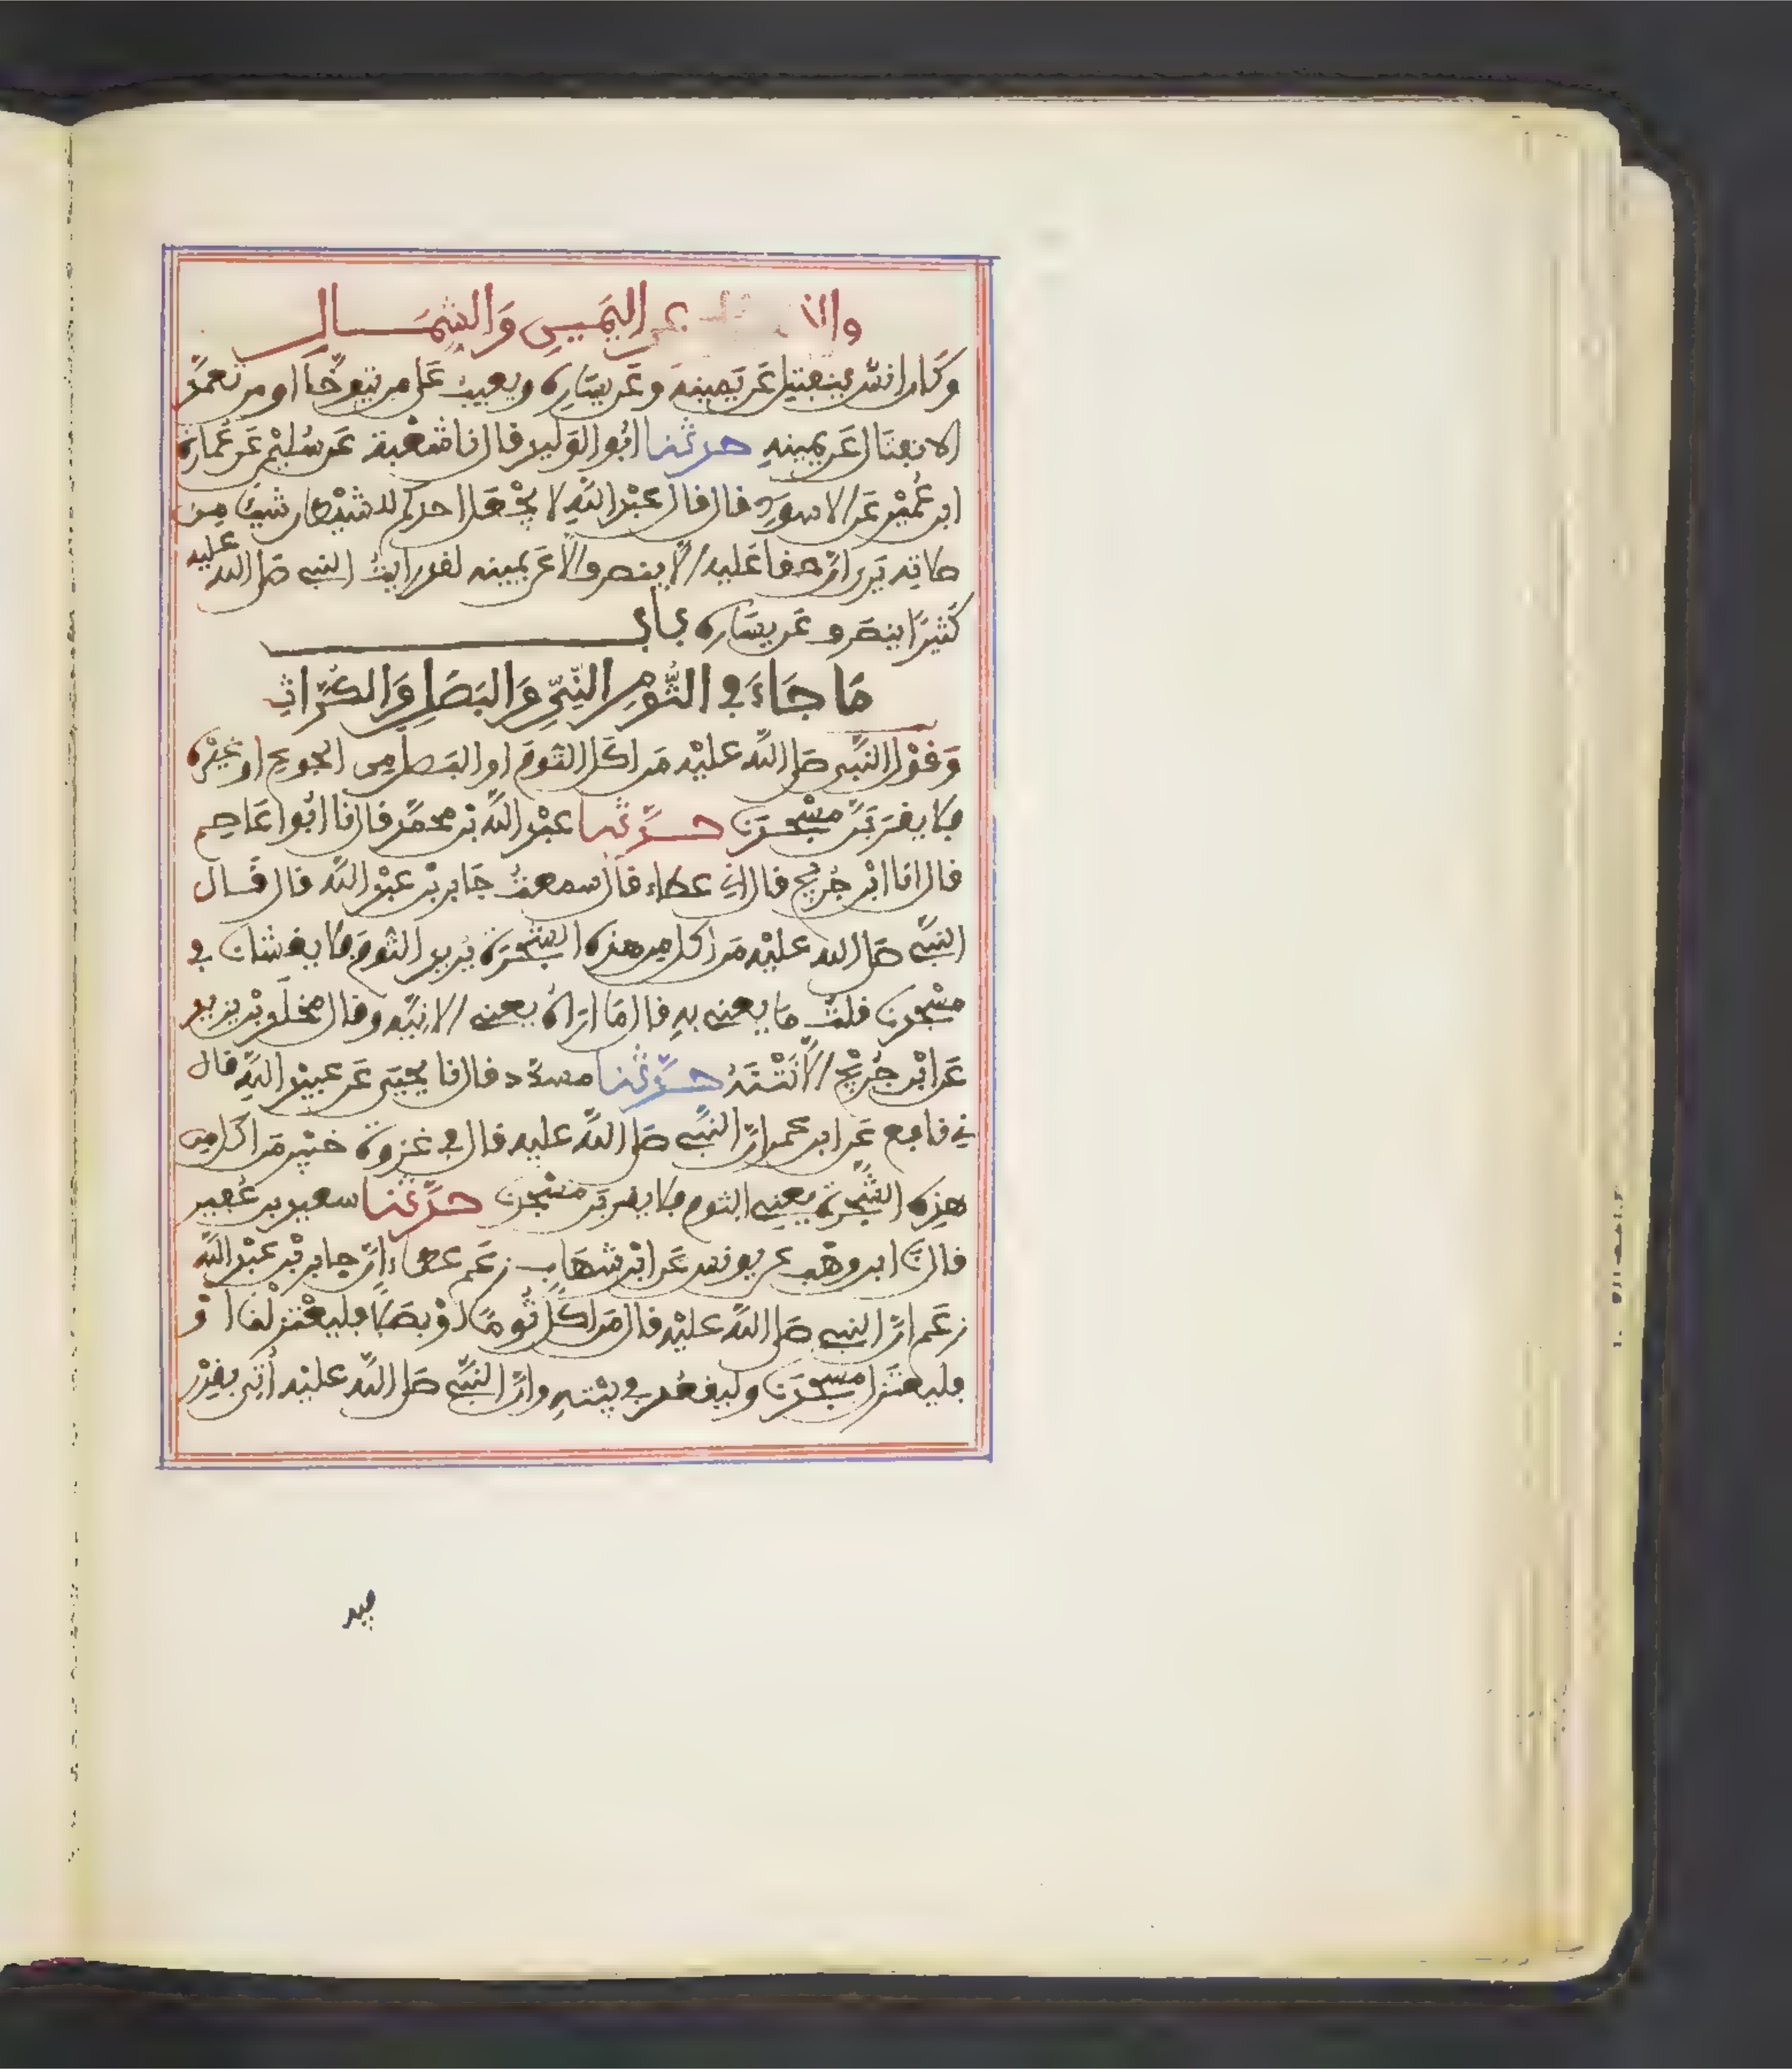 عن اليمين والشمال
وكان انس ينفتل عن يمينه وعن يساره ويعيب على من يتوخا او من تعمد
الانفتال عن يمينه حدثنا ابو الوليد قال نا شعبة عن سليمن عن عمارة
ابن عمير عن الاسود قال قال عبد الله لا يجعل احدكم للشيطان شيئا من
صلاته يرى ان حقا عليه الا ينصرف الا عن يمينه لقد رايت النبي صلى الله عليه
كثيرا ينصرف عن يساره باب
ما جاء في الثوم النيي والبصل والكراث
وقول النبي صلى الله عليه من اكل الثوم او البصل من الجوع او غيره
فلا يقربن مسجدنا حدثنا عبد الله بن محمد قال نا ابو عاصم
قال انا ابن جريج قال اني عطاء قال سمعت جابر بن عبد الله قال قال
النبي صلى الله عليه من اكل من هذه الشجرة يريد الثوم فلا يغشانا في
مسجدنا قلت ما يعني به قال ما اراه يعني الا نيه وقال مخلد بن يزيد
عن ابن جريج الا نتنه حدثنا مسدد قال نا يحيى عن عبيد الله قال
ني نافع عن ابن عمر ان النبي صلى الله عليه قال في غزوة خيبر من اكل من
هذه الشجرة يعني الثوم فلا يقربن مسجدنا حدثنا سعيد بن عفير
قال نا ابن وهب عن يونس عن ابن شهاب زعم عطاء ان جابر بن عبد الله
زعم ان النبي صلى الله عليه قال من اكل ثوما او بصلا فليعتزلنا او
فليعتزل مسجدنا وليقعد في بيته وان النبي صلى الله عليه اتي بقدر
فيه